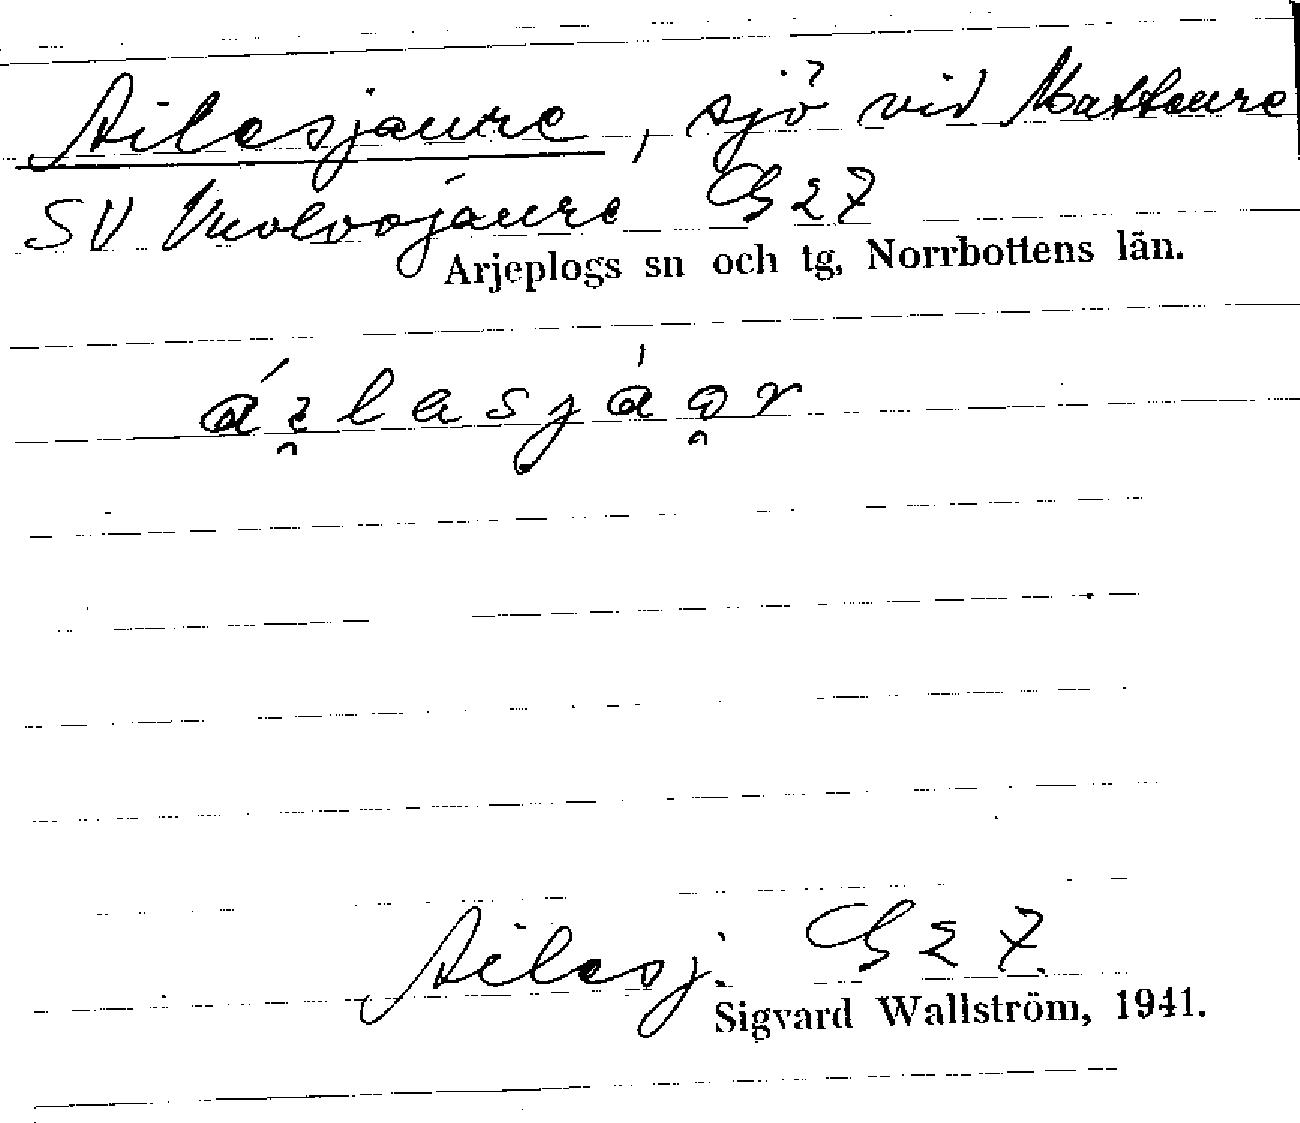 Ailesjaure, sjö vid Mattaure
SV Vuolvojaure G 27
Arjeplogs sn och tg, Norrbottens län.
ái̯lasjáo̯r
Ailesj. G 27
Sigvard Wallström, 1941.